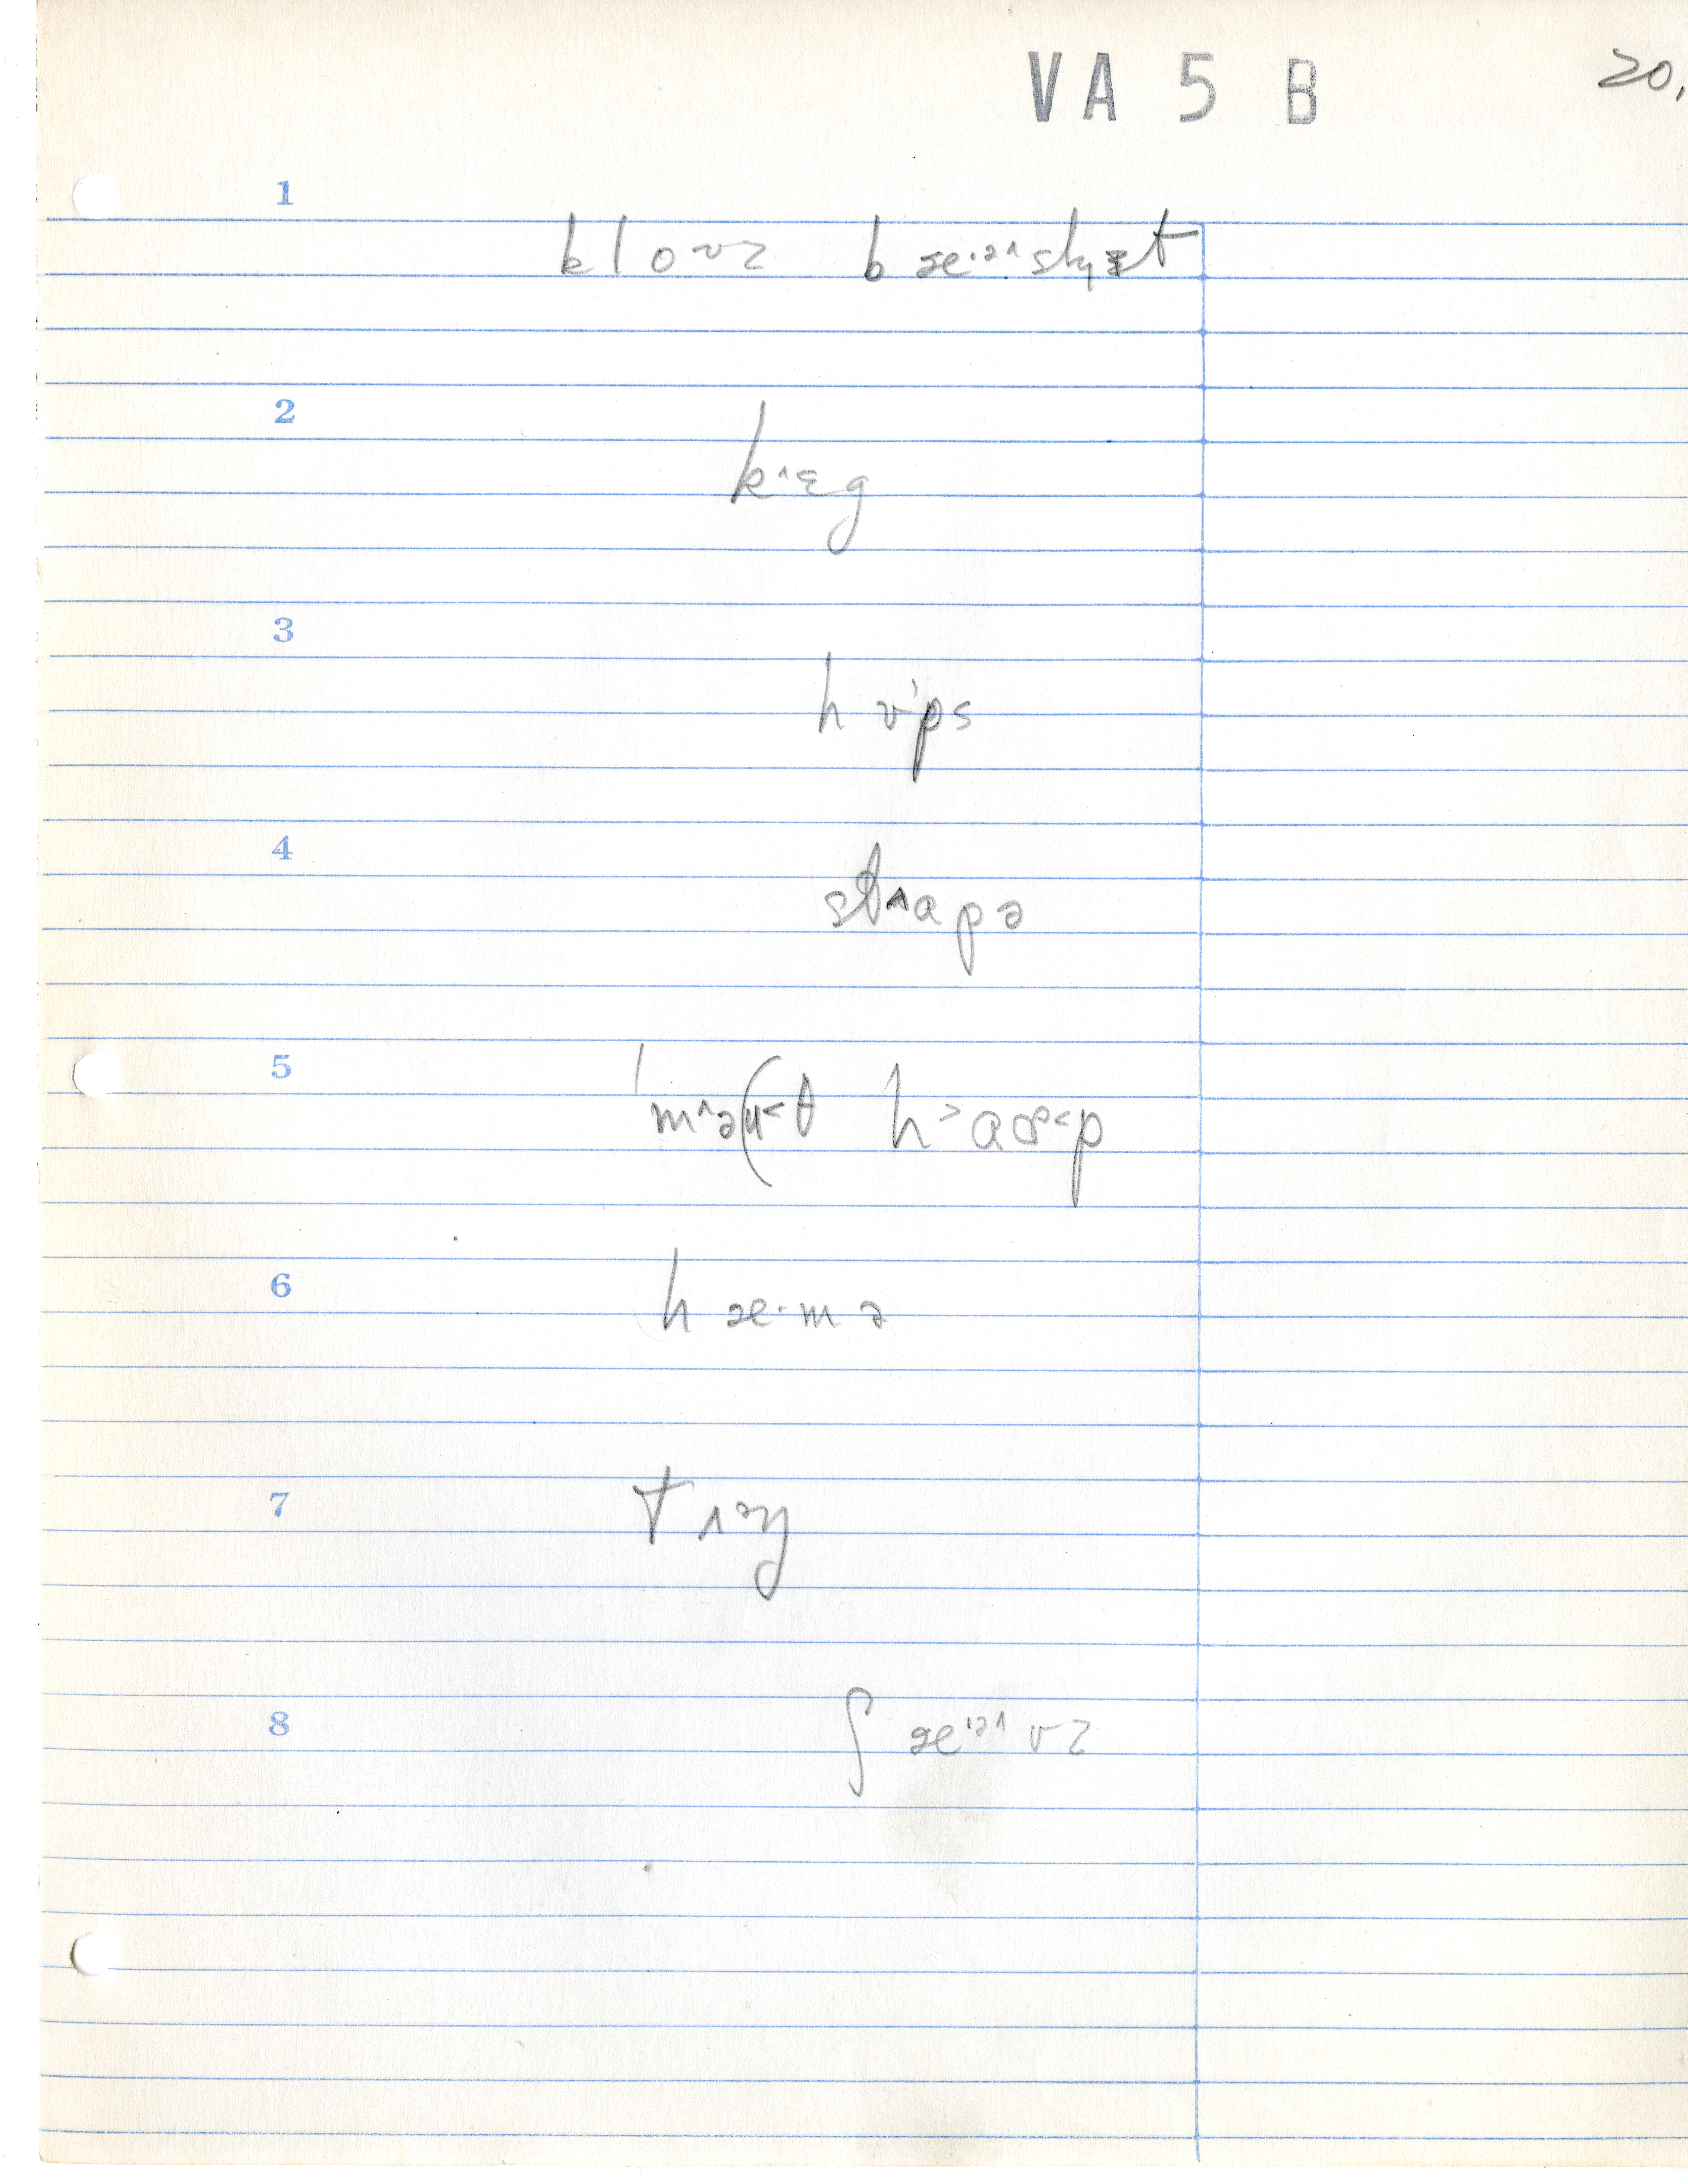 VA 5 B 20.
1
klo^ʊz bæ·ə^skɪ̵t
2
k^ɛg
3
hʊ'ps
4
st^ɑpə
5
'm^ə(ʊ<θ h>ɑɚ<p
6
hæ·mə
7
t^ɔŋ
8
ʃæ·ə^vz